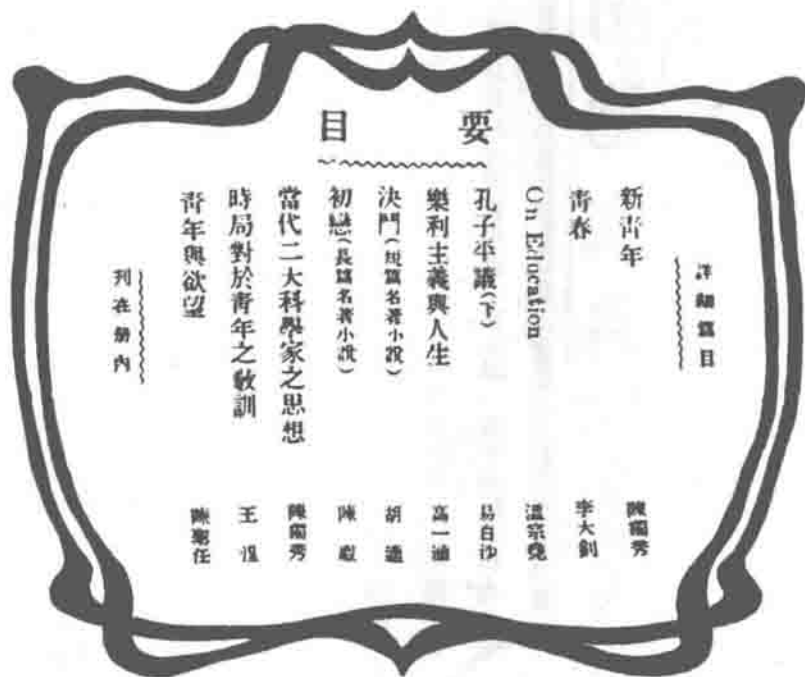 要目
詳細篇目
新青年 陳獨秀
青春 李大釗
On Education 溫宗堯
孔子平議(下) 易白沙
樂利主義與人生 高一涵
決鬥(短篇名著小說) 胡適
初戀(長篇名著小說) 陳嘏
當代二大科學家之思想 陳獨秀
時局對於青年之教訓 王湼
青年與欲望 陳聖任
列在册內